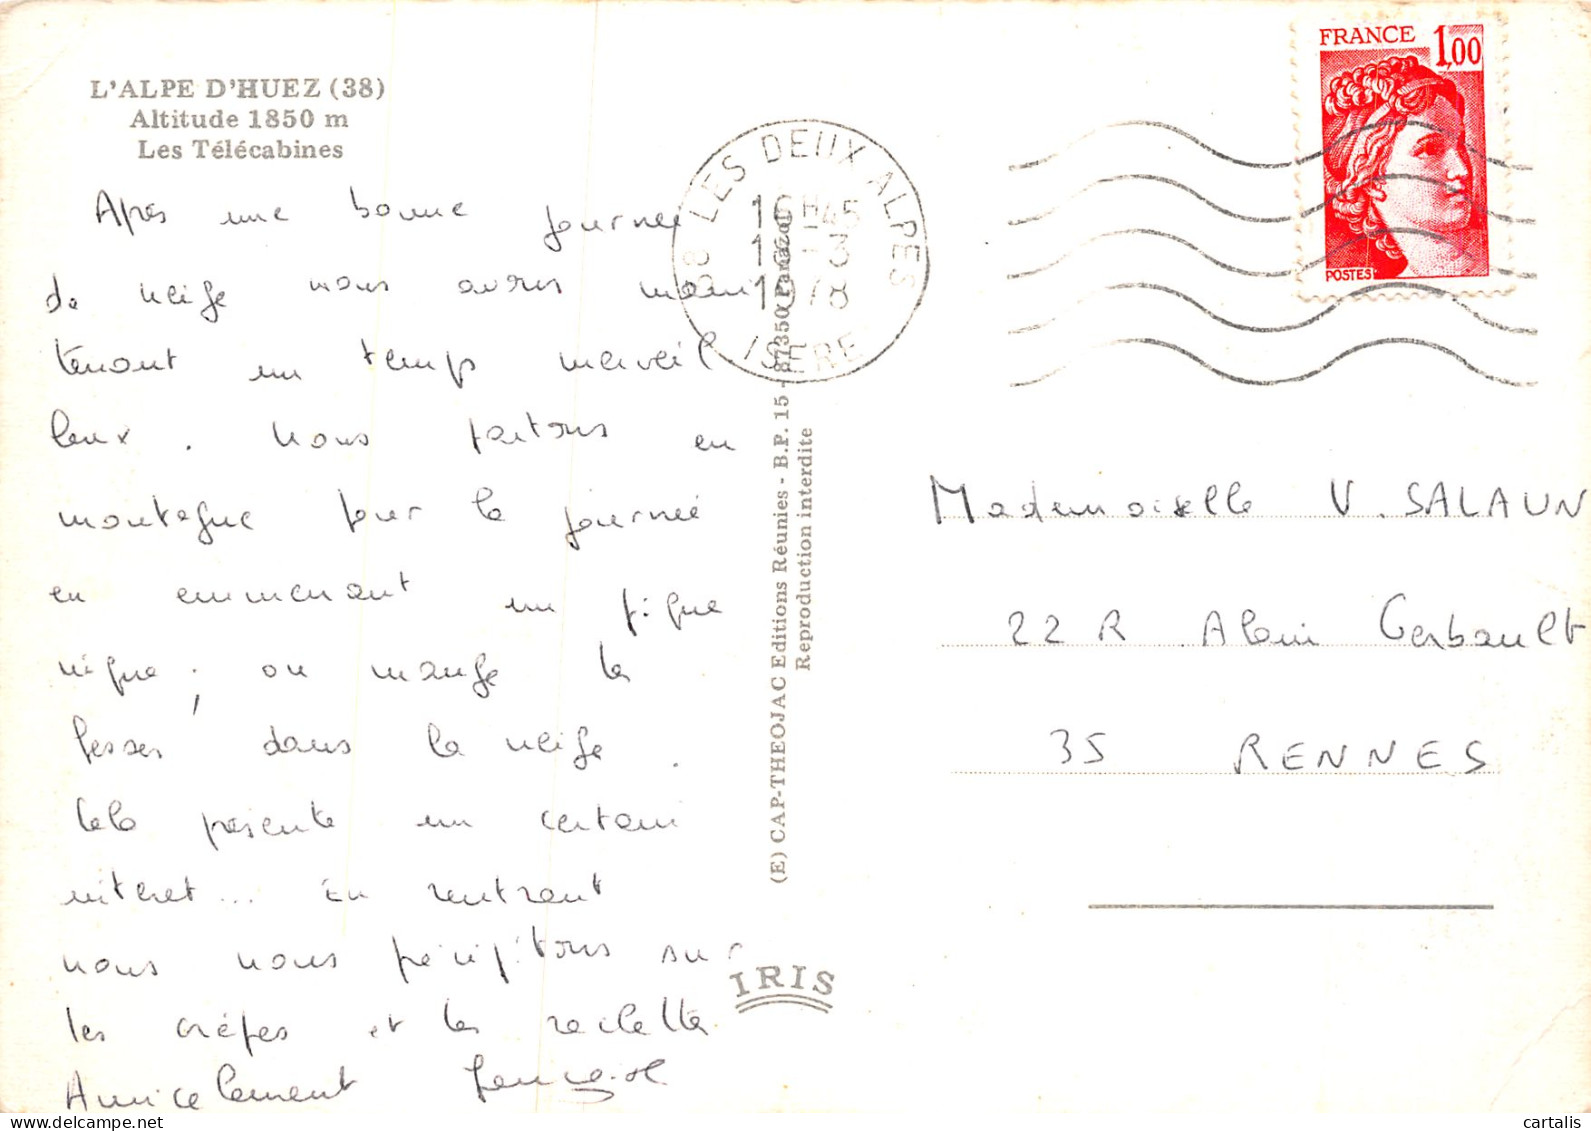 L'ALPE D'HUEZ (38)
Altitude 1850 m
Les Télécabines
Après une bonne journée
de neige nous avons main
tenant un temps merveil
leux. Nous partons en
montagne pour la journée
en emmenant un pique
nique ; on mange les
fesses dans la neige.
Cela présente un certain
intéret... En rentrant
nous nous précipitons sur
les crêpes et les raclettes
Amicalement
38 LES DEUX ALPES
16 H 45
1978
ISERE
(E) CAP-THEOJAC Editions Réunies - B.P. 15 - 87350 Panazol
Reproduction interdite
IRIS
FRANCE 1,00
POSTES
Mademoiselle V. SALAUN
22 R Alain Gerbault
35 RENNES
cartalis